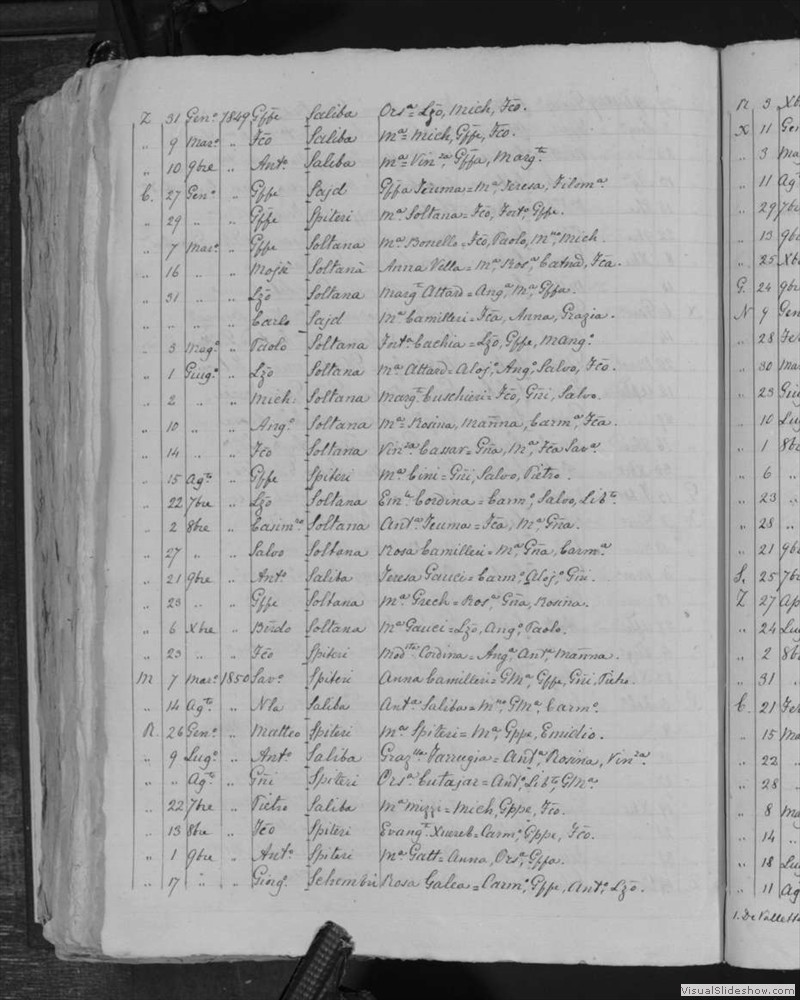 Z 31 Genº 1849 Gffe Saliba Orsª = Lzō, Mich, Fcō.
„ 9 Marº „ Fcō Saliba Mª = Mich, Gffe, Fcō.
„ 10 9bre „ Antº Saliba Mª = Vinzª, Gffa, Margta.
C. 27 Genº „ Gffe Sajd Gffa Teuma = Mª, Teresa, Filomª.
„ 29 „ „ Gffe Spiteri Mª Soltana = Fcō, Fortº, Gffe.
„ 7 Marº „ Gffe Soltana Mª Bonello = Fcō, Paolo, Mich.
„ 16 „ „ Mojsè Soltana Anna Vella = Mª, Rosª, Fcā.
„ 31 „ „ Lzō Soltana Margta Attard = Angª, Mª, Gffa.
„ „ „ „ Carlo Sajd Mª Camilleri = Fcā, Anna, Grazia.
„ 3 Magº „ Paolo Soltana Fortª Cachia = Lzō, Gffe, Mangº.
„ 1 Giugº „ Lzō Soltana Mª Attard = Alojº, Angº, Salvo, Fcō.
„ 2 „ „ Mich: Soltana Margta Cuschieri = Fcō, Gñi, Salvo.
„ 10 „ „ Angº Soltana Mª = Rosina, Mañna, Carmª, Fcā.
„ 14 „ „ Fcō Soltana Vinzª Cassar = Gña, Mª, Fcā Savª.
„ 15 Agto „ Gffe Spiteri Mª Cini = Gñi, Salvo, Pietro.
„ 22 7bre „ Lzō Soltana Emla Cordina = Carmº, Salvo, Libta.
„ 2 8bre „ Casimro Soltana Antª Teuma = Fcā, Mª, Gña.
„ 27 „ „ Salvo Soltana Rosa Camilleri = Mª, Gña, Carmª.
„ 21 9bre „ Antº Saliba Teresa Gauci = Carmº, Alojº, Gñi.
„ 23 „ „ Gffe Soltana Mª Grech = Rosª, Gña, Rosina.
„ 6 Xbre „ Bērdo Soltana Mª Gauci = Lzō, Angº, Paolo.
„ 23 „ „ Fcō Spiteri Modsta Cordina = Angª, Antª, Mañna.
M 7 Marº 1850 Savº Spiteri Anna Camilleri = GMª, Gffe, Gñi, Pietro.
„ 14 Agto „ Nla Saliba Antª Saliba = Mno, GMª, Carmº.
R. 26 Genº „ Matteo Spiteri Mª Spiteri = Mª, Gppe, Emidio.
„ 9 Lugº „ Antº Saliba Grazlla Farrugia = Antª, Rosina, Vinzª.
„ „ Agto „ Gñi Spiteri Orsª Cutajar = Antº, Libta, GMª.
„ 22 7bre „ Pietro Saliba Mª Mizzi = Mich, Gppe, Fcō.
„ 13 8bre „ Fcō Spiteri Evangta Xuereb = Carmº, Gppe, Fcō.
„ 1 9bre „ Antº Spiteri Mª Gatt = Anna, Orsª, Gffa.
„ 17 „ „ Gingº Schembri Rosa Galea = Carmº, Gffe, Antº, Lzō.
R 3 Xb
X 11 Gen
„ 3 Ma
„ 11 Ag
„ 29 7b
„ 13 9b
„ 25 Xb
G. 24 9br
N 9 Gen
„ 28 Fe
„ 30 Ma
„ 23 Giu
„ 10 Lu
„ 1 8b
„ 6 „
„ 23 „
„ 28 „
„ 21 9b
S. 25 7b
Z 27 Ap
„ 24 Lu
„ 2 8b
„ 31 „
C. 21 Fe
„ 15 Ma
„ 22 „
„ 28 „
„ 8 Ma
„ 14 „
„ 18 Lu
„ 11 Ag
1. De Valletta
VisualSlideshow.com